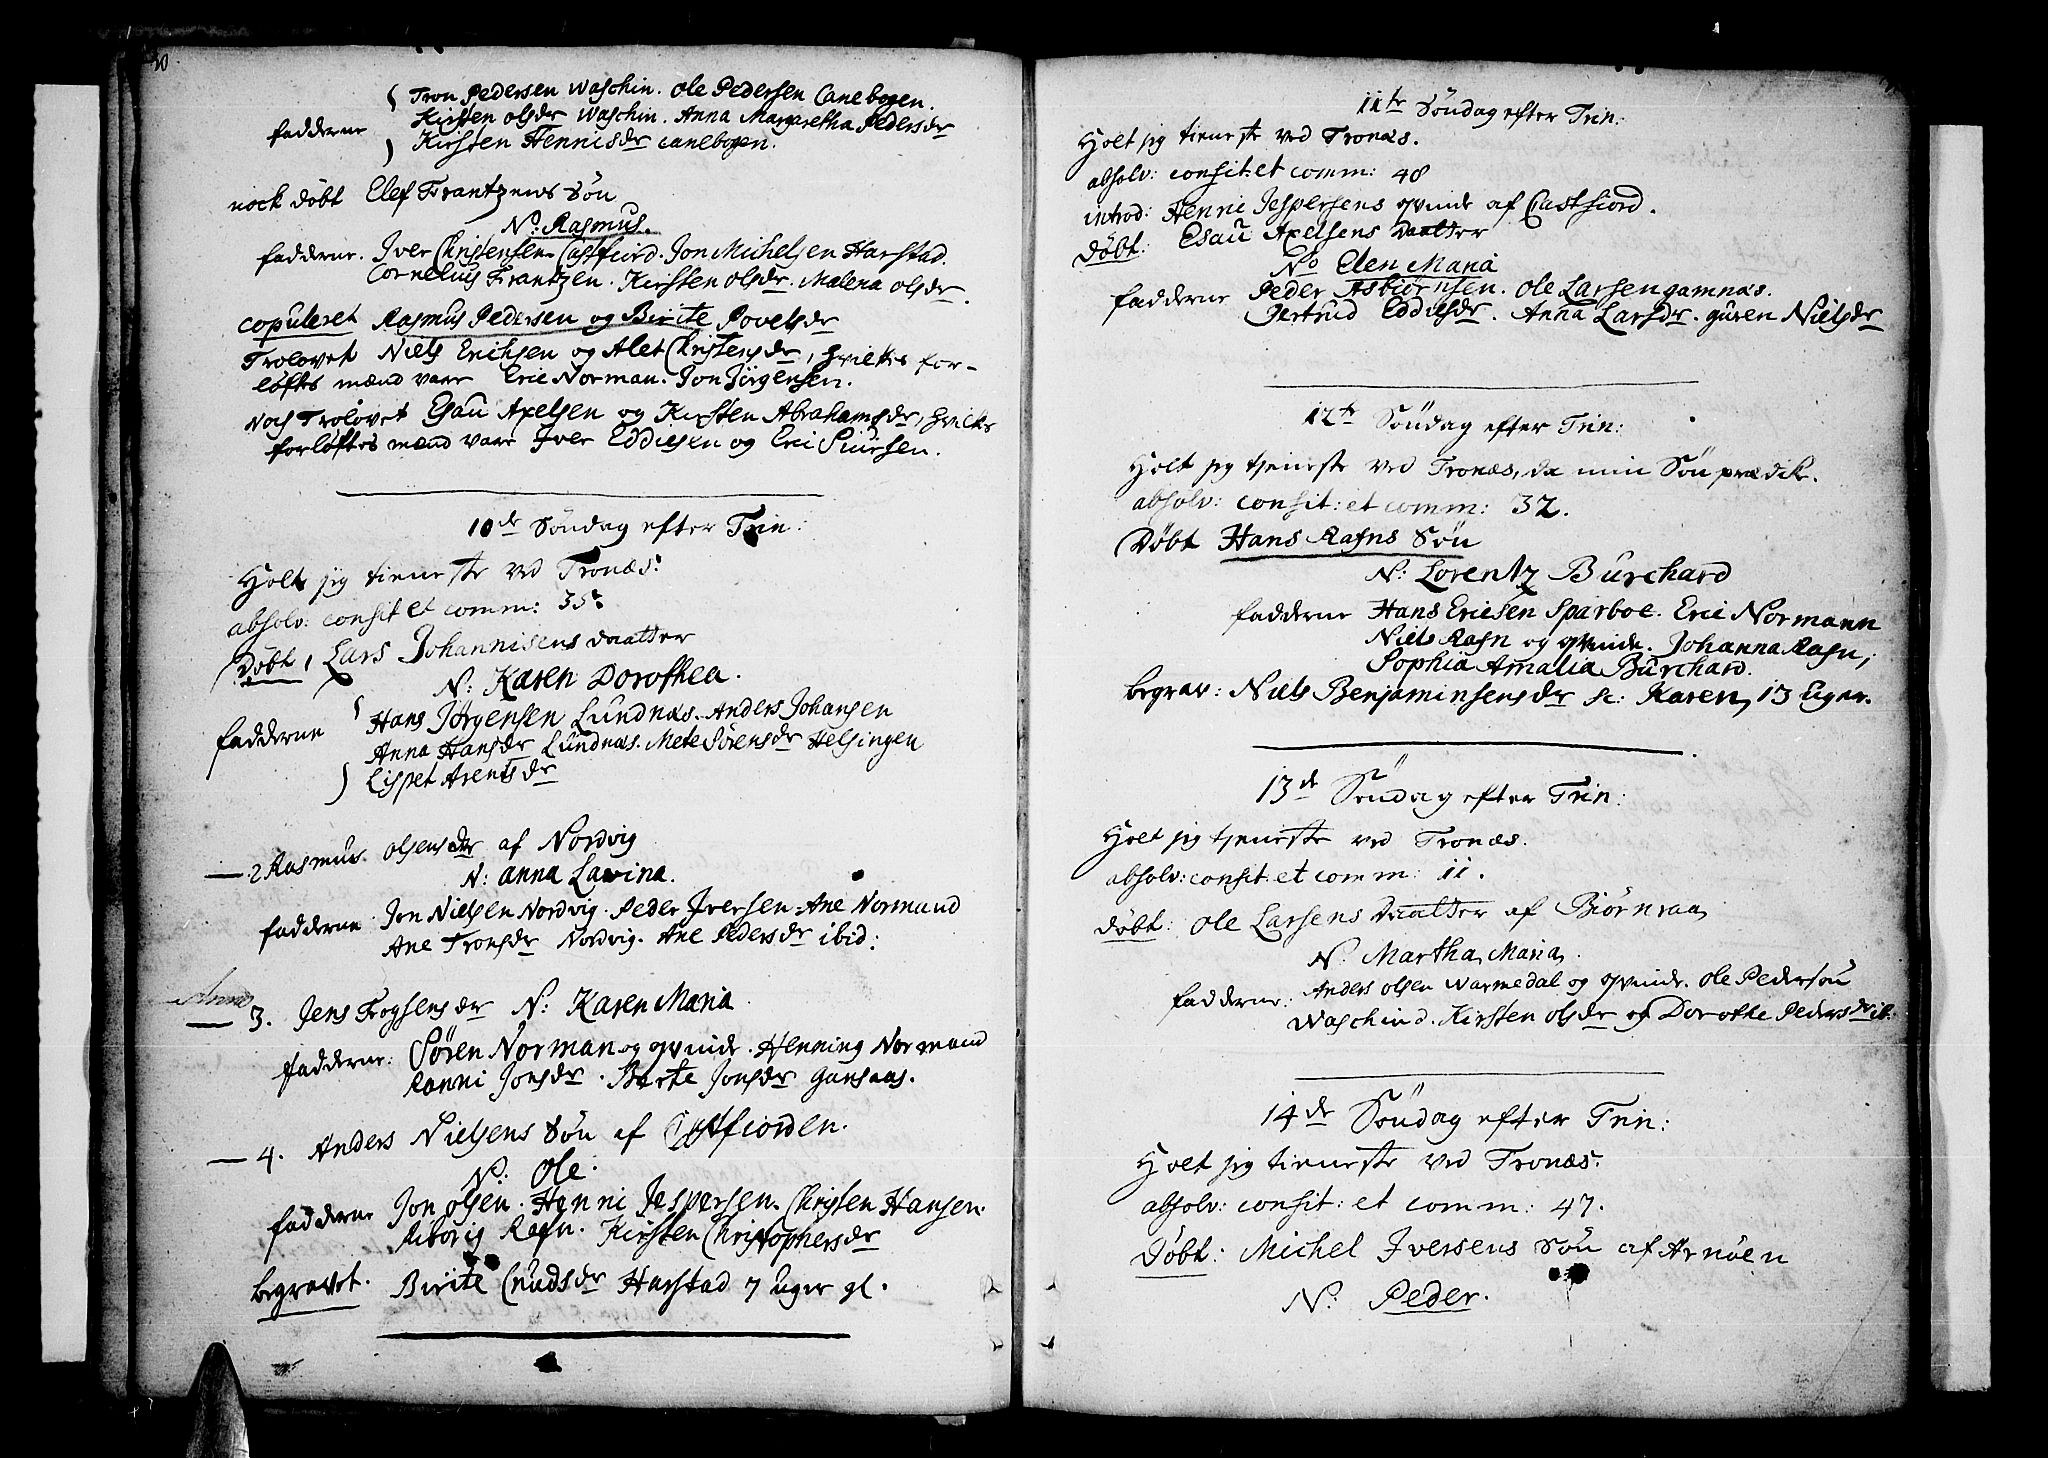 Tron Pedersen Waschin. Ole Pedersen Canebogen.
fadderne Kirsten olsdr Waschin. Anna Margaretha Pedersdr
Kirsten Hennisdr canebogen.
nock döbt Elef Frantzens Sön
N: Rasmus.
fadderne. Iver Christensen Castfiord. Jon Michelsen Harstad.
Cornelius Frantzen. Kirsten olsdr. Malena olsdr.
copuleret Rasmus Pedersen og Birite Povelsdr
Trolovet Niels Erichsen og Alet Christensdr, hvilkes for-
löftes mænd vare Eric Norman. Jon Jörgensen.
Noch Trolovet Esau Axelsen og Kirsten Abrahamsdr, hvilkes
forlöftes mænd vare Iver Eddiesen og Eric Siursen.
10de Söndag efter Trin:
Holt jeg tieneste ved Tronæs:
absolv: consit et comm: 35.
Döbt 1 Lars Johannisens daatter
N: Karen Dorothea.
fadderne Hans Jörgensen Lundnæs. Anders Johansen
Anna Hansdr Lundnæs. Mete Sörensdr Helsingen
Lispet Arentsdr
2 Rasmus olsensdr af Nordvig
N: anna Lavina.
fadderne Jon Nielsen Nordvig. Peder Iversen. Ane Normand
Ane Tronsdr Nordvig. Ane Pedersdr ibid:
3. Jens Trogsensdr N: Karen Maria
fadderne: Sören Norman og qvinde. Henning Normand
Ranni Jonsdr. Birte Jonsdr Gansaas.
4. Anders Nielsens Sön af Castfiorden.
N: Ole.
fadderne Jon olsen. Henni Jespersen. Christen Hansen.
Riborig Rafn. Kirsten Christophersdr
begravet. Birite Cnudsdr Harstad 7 uger gl.
11te Söndag efter Trin:
Holt jeg tieneste ved Tronæs.
absolv: consit: et comm: 48
introd: Henni Jespersens qvinde af Castfiord.
Döbt: Esau Axelsens daatter
No Elen Maria
fadderne Peder Asbiörnsen. Ole Larsen gamnæs.
Gertrud Eddiesdr. Anna Larsdr. guren Nielsdr
12te Söndag efter Trin:
Holt jeg tjeneste ved Tronæs, da min Sön prædik.
absolv: consit: et comm: 32.
Döbt Hans Rafns Sön
N: Lorentz Burchard
fadderne Hans Ericsen Sparboe. Eric Normann
Niels Rafn og qvinde. Johanna Rafn,
Sophia Amalia Burchard.
begrav: Niels Benjaminsensdr sc: Karen, 13 Uger.
13de Söndag efter Trin:
Holt jeg tjeneste ved Tronæs.
absolv: consit: et comm: 11.
döbt: Ole Larsens Daatter af Biörnraa
N. Martha Maria.
fadderne: Anders olsen Warmedal og qvinde. Ole Pedersön
Waschind. Kirsten olsdr og Dorothe Pedersdr ib.
14de Söndag efter Trin:
Holt jeg tieneste ved Tronæs.
absolv: consit: et comm: 47.
Döbt: Michel Iversens Sön af Arnöen
N: Peder.